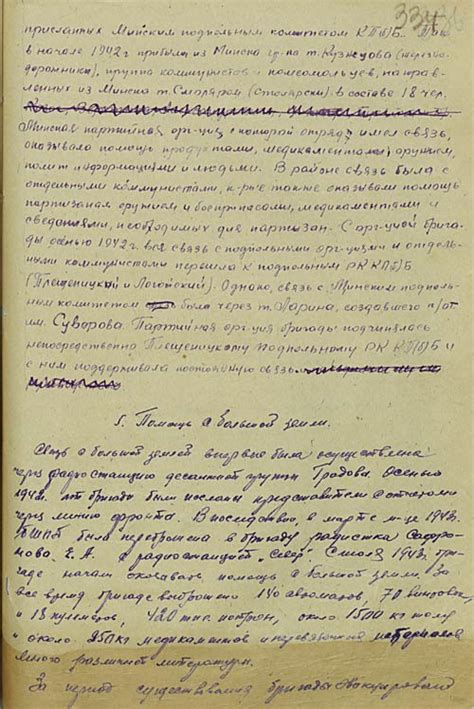 присланных Минским подпольным комитетом КП(б)Б. Так
в начале 1942 г прибыли из Минска гр-па т. Кузнецова (железно-
дорожники), группа коммунистов и комсомольцев, направ-
ленных из Минска т. в составе 18 чел.
Минская партийная орг-ция с которой отряд имел связь,
оказывала помощь продуктами, медикаментами, оружием,
полит информациями и людьми. В районе связь была с
отдельными коммунистами, к-рые также оказывали помощь
партизанам оружием и боеприпасами, медикаментами и
сведениями, необходимых для партизан. С орг-цией брига-
ды осенью 1942 г. вся связь с подпольными орг-циями и отдель-
ными коммунистами перешла к подпольным РК КП(б)Б
(Плещеницкий и Логойский). Однако, связь с Минским подполь-
ным комитетом была через т. Ларина, создавшего п/от
им. Суворова. Партийная орг-ция бригады подчинялась
непосредственно Плещеницкому подпольному РК КП(б)Б и
с ним поддерживала постоянную связь.
5. Помощь с большой земли.
Связь с большой землей впервые была осуществлена
через радиостанцию десантной группы Градова. Осенью
1942 г. от бригады были посланы представители с отчетами
через линию фронта. В последствии, в марте м-це 1943 г.
БШПД была переброшена в бригаду радистка Сафро-
нова Е. А. с радиостанцией „Север". С июля 1943 г. бри-
гаде начали оказывать помощь с большой земли. За
все время бригаде выброшено 140 автоматов, 70 винтовок,
и 18 пулеметов, 420 тыс. патрон, около 1500 кг толя
и около 250 кг медикаментов и перевязочных материалов
много различной литературы.
За период существования бригады эвакуировано